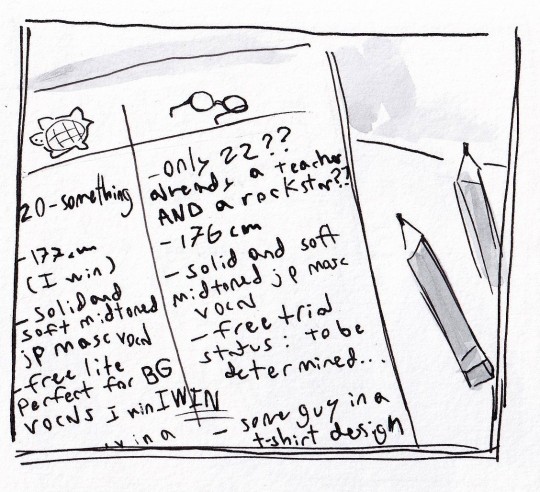 20-something
-177cm
(I win)
-solid and
soft midtoned
jp masc vocal
-free lite
perfect for BG
vocals I win I WIN
in a
-only 22??
already a teacher
AND a rockstar??
-176cm
-solid and soft
midtoned jp masc
vocal
-free trial
status: to be
determined...
- some guy in a
t-shirt design